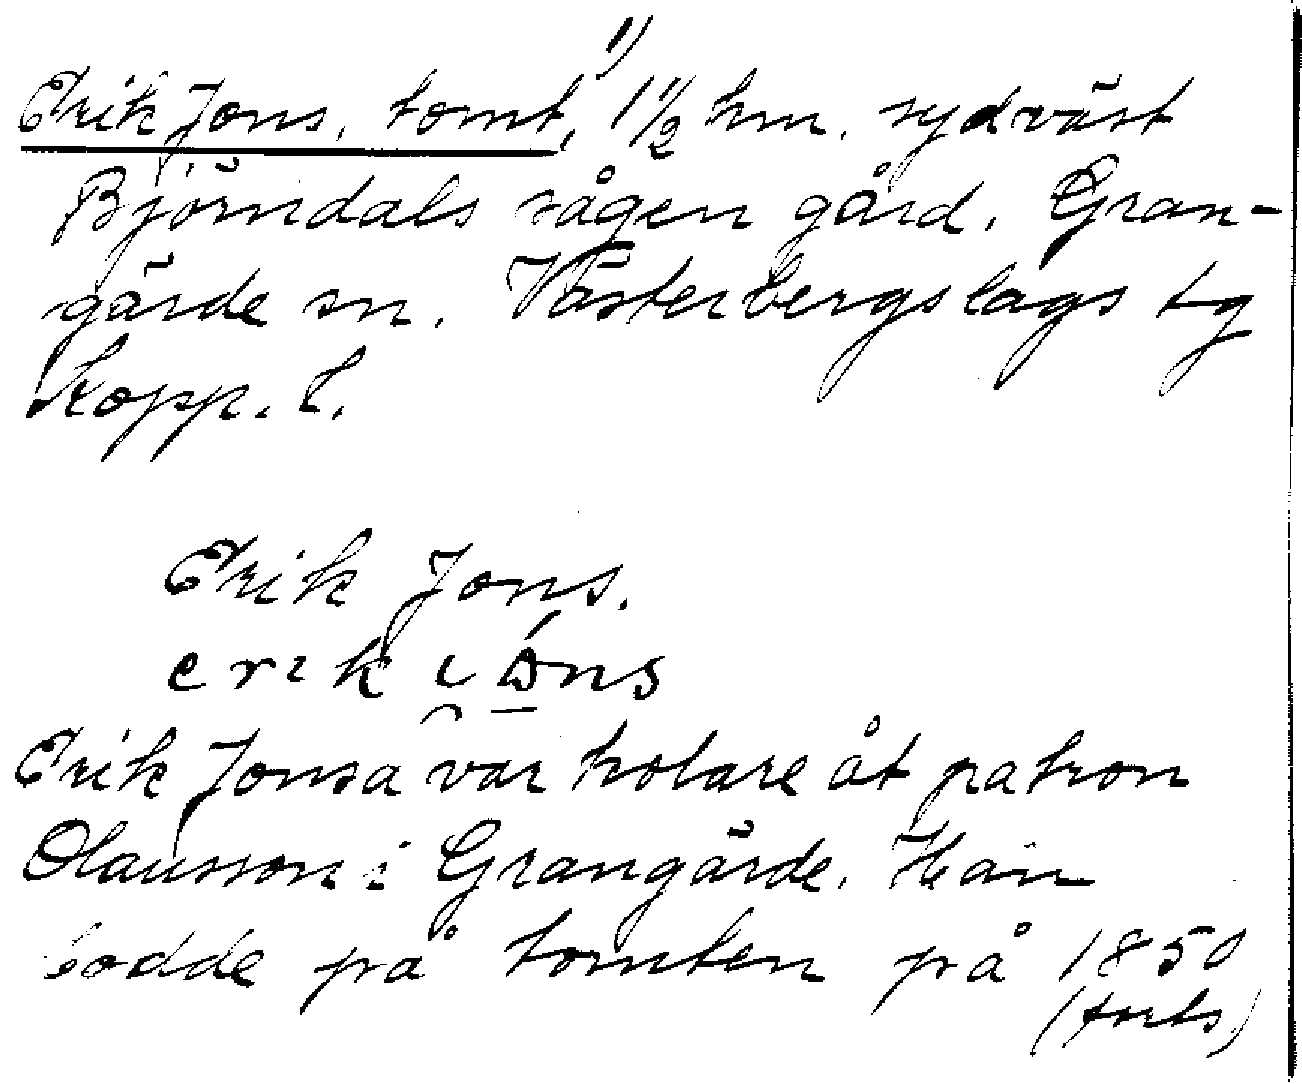 Erik Jons, tomt, 1) 1½ km. sydväst
Björndals sågen gård. Gran-
gärde sn. Västerbergslags tg
Kopp. l.
Erik Jons.
erik i̯ɷ́ns
Erik Jonsa var kolare åt patron
Olausson i Grangärde. Han
bodde på tomten på 1850
(forts)